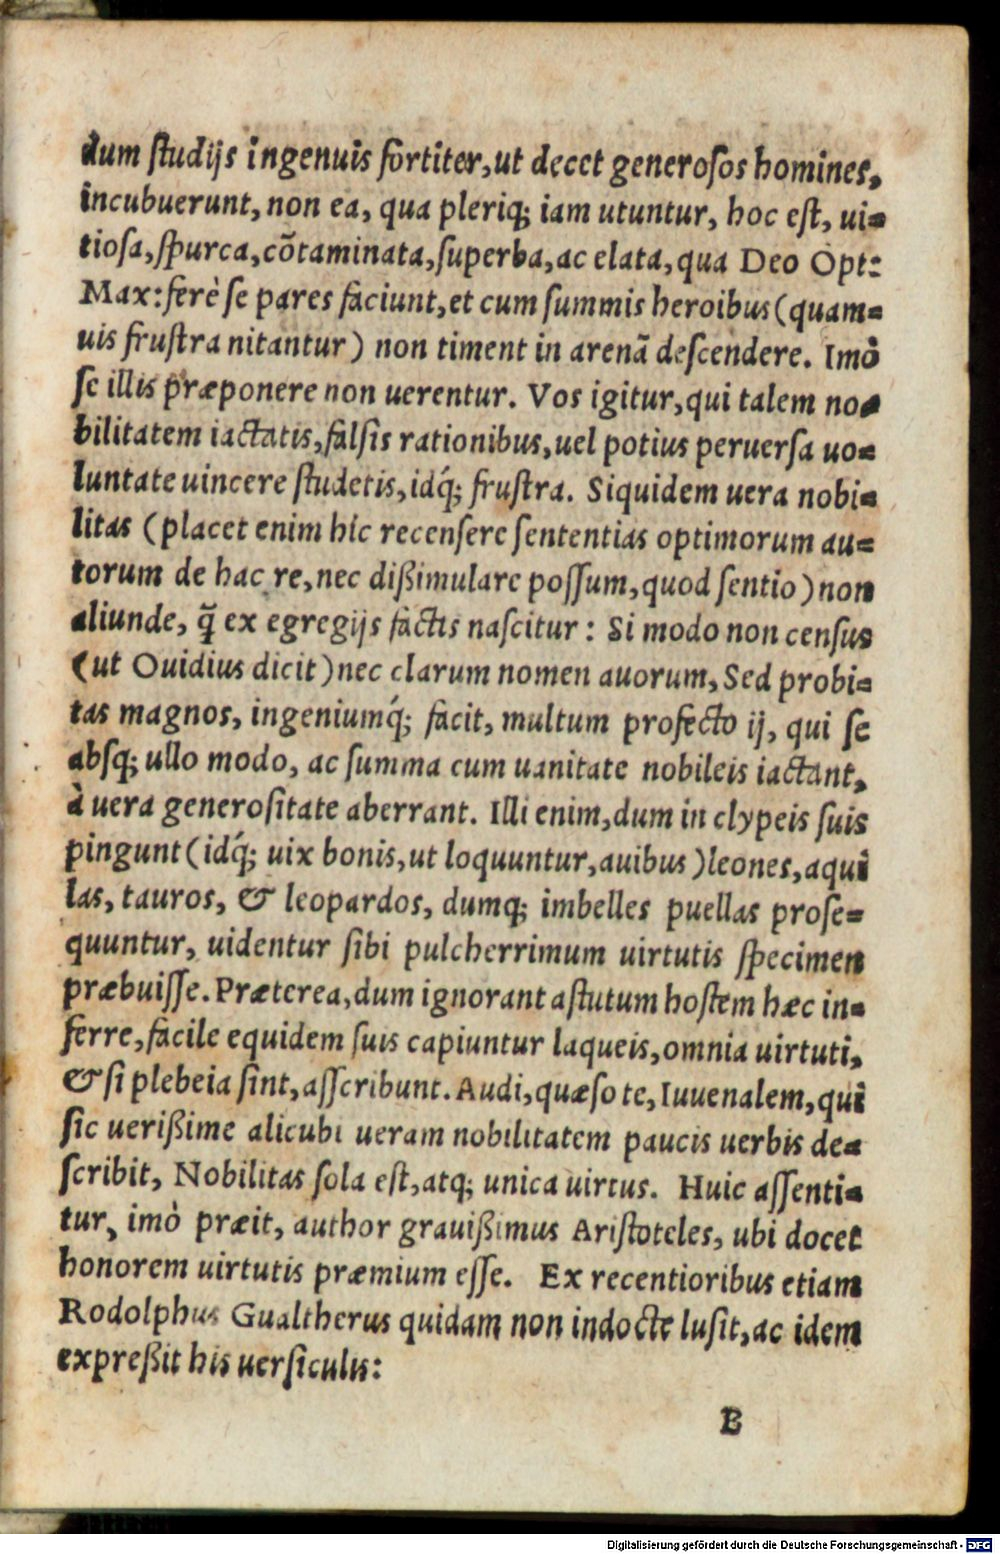 dum ſtudijs ingenuis fortiter, ut decet generoſos homines,
incubuerunt, non ea, qua pleriq; iam utuntur, hoc eſt, ui-
tioſa, ſpurca, cõtaminata, ſuperba, ac elata, qua Deo Opt:
Max: ferè ſe pares faciunt, et cum ſummis heroibus (quam-
uis fruſtra nitantur) non timent in arenã deſcendere. Imò
ſe illis præponere non uerentur. Vos igitur, qui talem no-
bilitatem iactatis, falſis rationibus, uel potius peruerſa uo-
luntate uincere ſtudetis, idq́; fruſtra. Siquidem uera nobi-
litas (placet enim hîc recenſere ſententias optimorum au-
torum de hac re, nec dißimulare poſſum, quod ſentio) non
aliunde, q̃ ex egregijs factis naſcitur: Si modo non cenſus
(ut Ouidius dicit) nec clarum nomen auorum, Sed probi-
tas magnos, ingeniumq́; facit, multum profecto ij, qui ſe
abſq; ullo modo, ac ſumma cum uanitate nobileis iactant,
à uera generoſitate aberrant. Illi enim, dum in clypeis ſuis
pingunt (idq́; uix bonis, ut loquuntur, auibus) leones, aqui
las, tauros, & leopardos, dumq; imbelles puellas proſe-
quuntur, uidentur ſibi pulcherrimum uirtutis ſpecimen
præbuiſſe. Præterea, dum ignorant aſtutum hoſtem hæc in-
ferre, facile equidem ſuis capiuntur laqueis, omnia uirtuti,
& ſi plebeia ſint, aſſcribunt. Audi, quæſo te, Iuuenalem, qui
ſic uerißime alicubi ueram nobilitatem paucis uerbis de-
ſcribit, Nobilitas ſola eſt, atq; unica uirtus. Huic aſſenti-
tur, imò præit, author grauißimus Ariſtoteles, ubi docet
honorem uirtutis præmium eſſe. Ex recentioribus etiam
Rodolphus Gualtherus quidam non indocte luſit, ac idem
expreßit his uerſiculis:
B
Digitalisierung gefördert durch die Deutsche Forschungsgemeinschaft - DFG